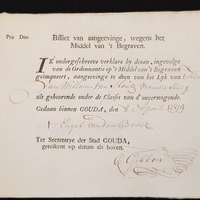 Pro Deo.
Billiet van aangeevinge, wegens het
Middel van 't Begraven.
IK ondergeschreeve verklare by deesen, ingevolge
van de Ordonnantie op 't Middel van 't Begraven
geëmaneert, aangeevinge te doen van het Lyk van
Van Willem van
als gehorende onder de Classis van d'onvermogende.
Gedaan binnen GOUDA, den 8 April 1799
Ter Secretarye der Stad GOUDA,
getekent op datum als boven.